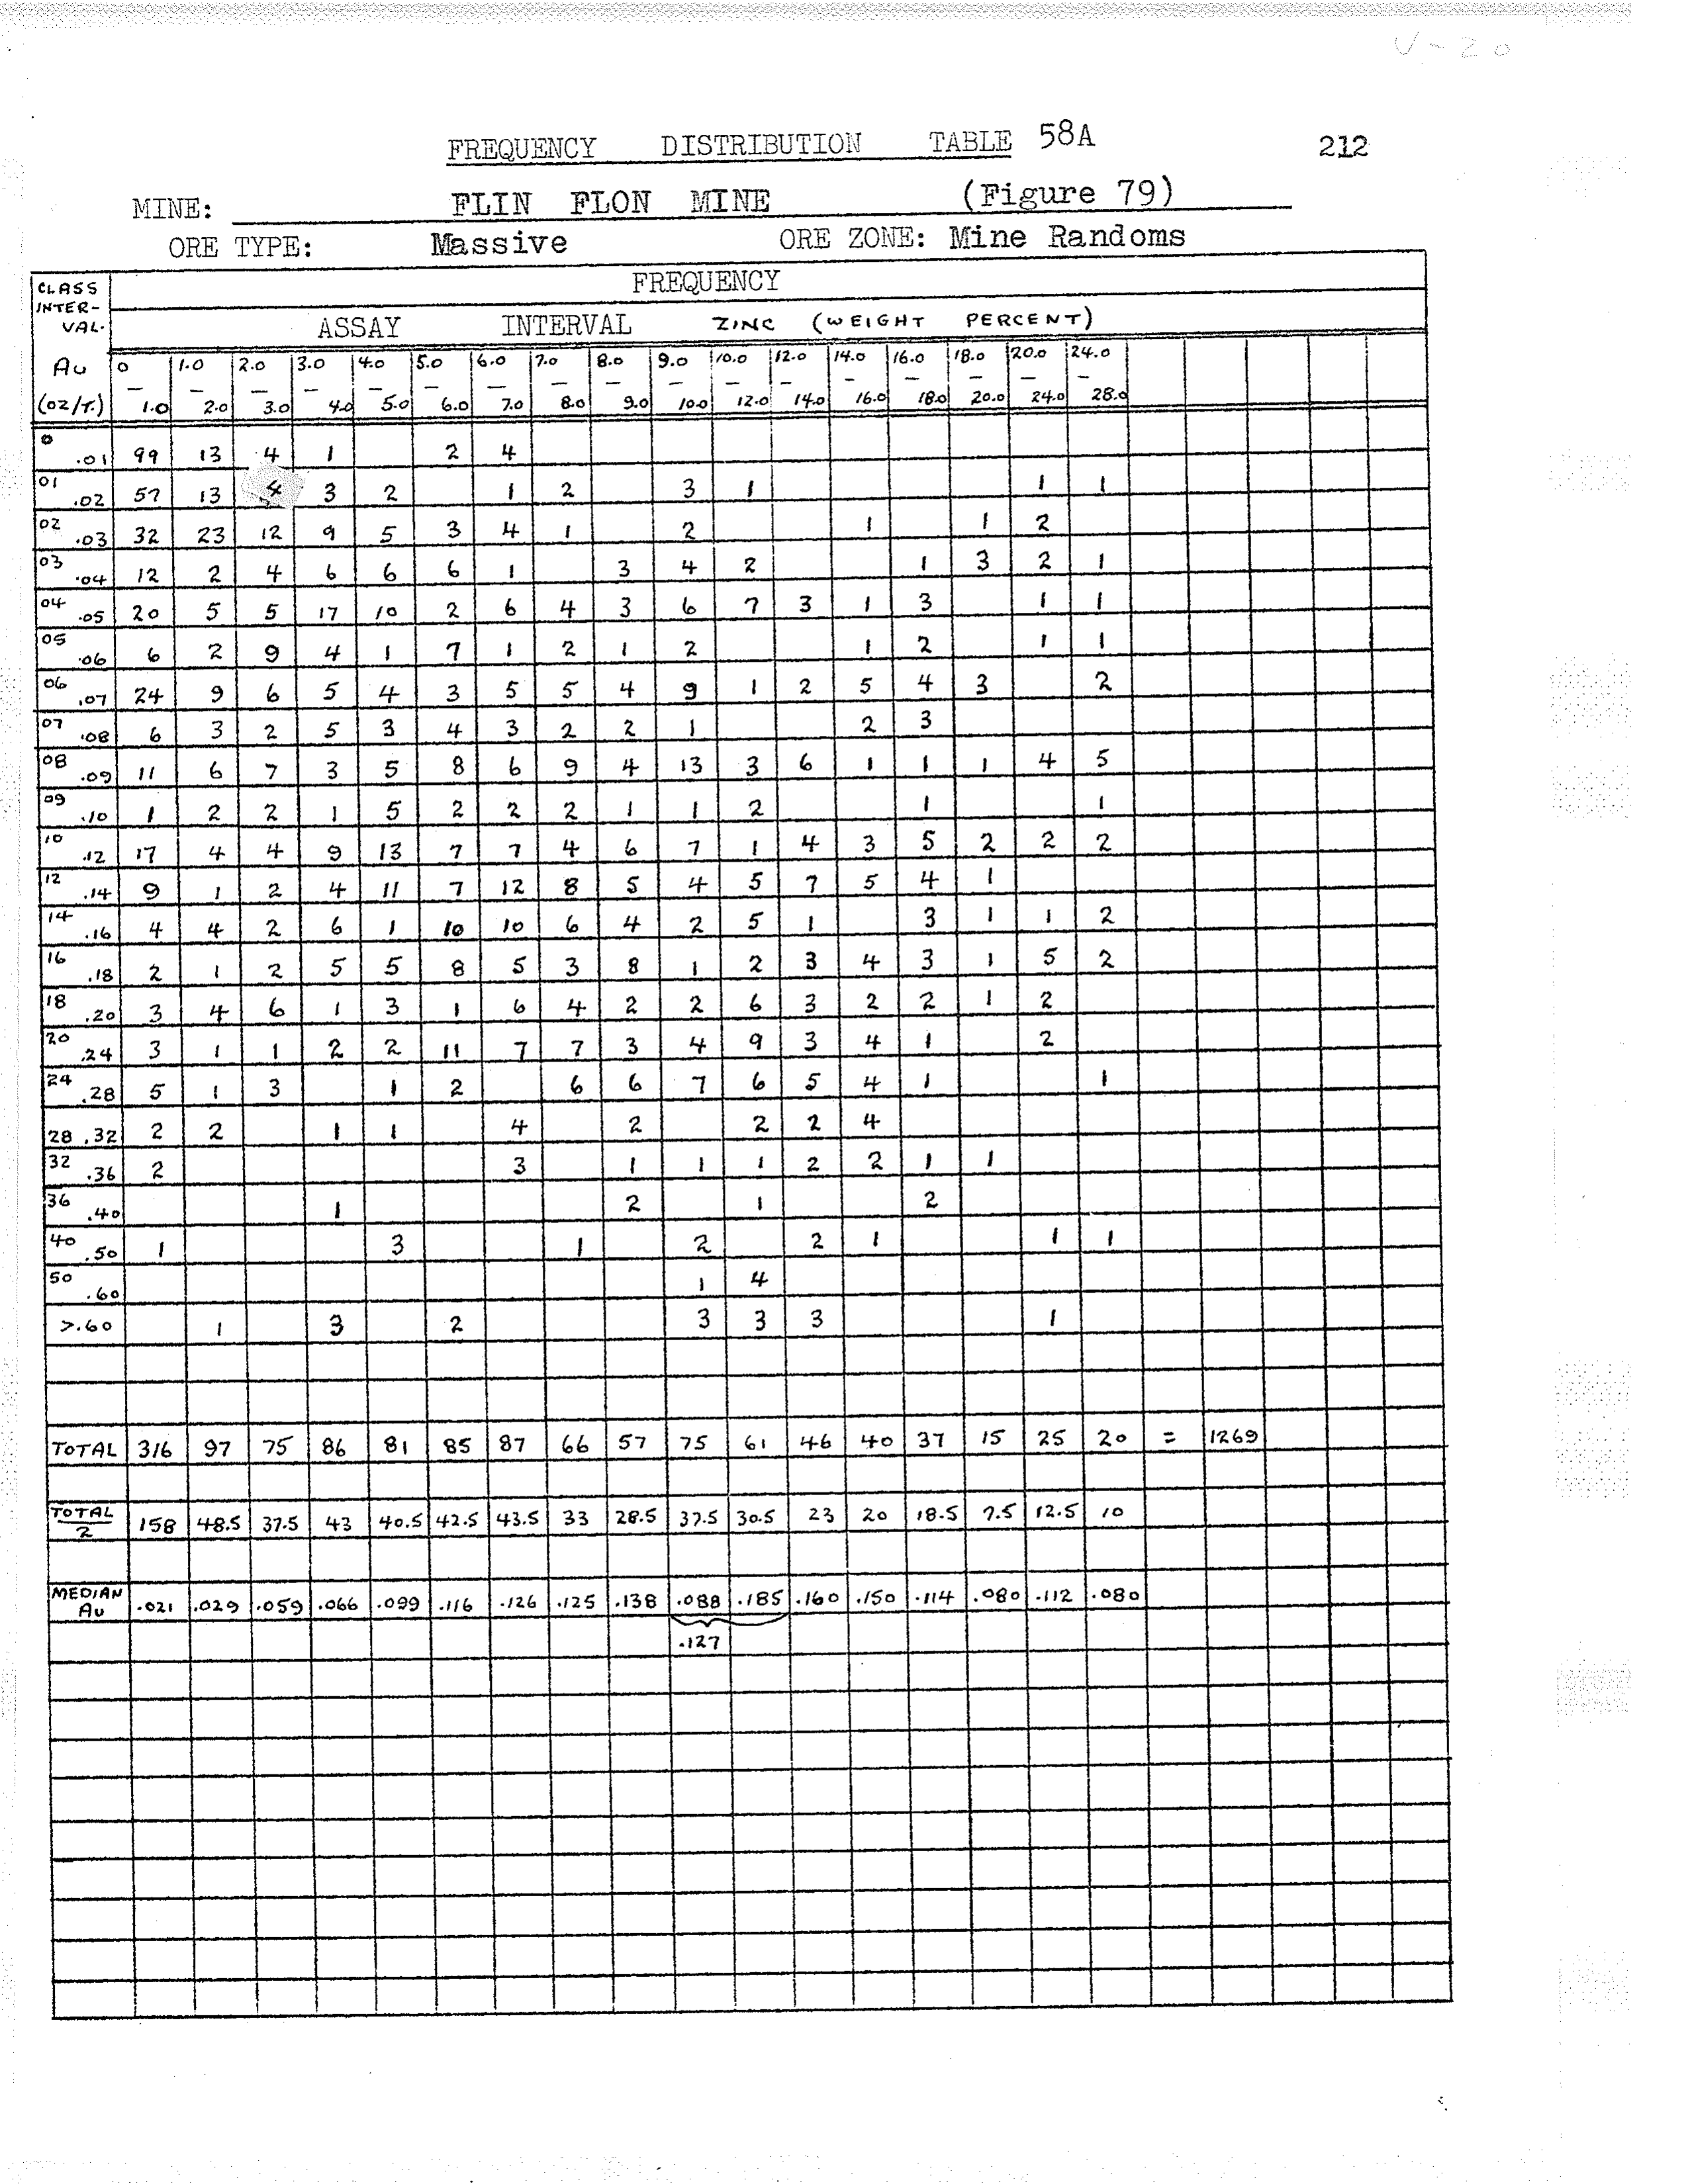 V-20
FREQUENCY DISTRIBUTION TABLE 58A 212
MINE: FLIN FLON MINE (Figure 79)
ORE TYPE: Massive ORE ZONE: Mine Randoms
CLASS INTER-VAL. FREQUENCY
ASSAY INTERVAL ZINC (WEIGHT PERCENT)
Au 0 1.0 2.0 3.0 4.0 5.0 6.0 7.0 8.0 9.0 10.0 12.0 14.0 16.0 18.0 20.0 24.0
– – – – – – – – – – – – – – – – –
(oz/T.) 1.0 2.0 3.0 4.0 5.0 6.0 7.0 8.0 9.0 10.0 12.0 14.0 16.0 18.0 20.0 24.0 28.0
0 .01 99 13 4 1 2 4
01 .02 57 13 4 3 2 1 2 3 1 1 1
02 .03 32 23 12 9 5 3 4 1 2 1 1 2
03 .04 12 2 4 6 6 6 1 3 4 2 1 3 2 1
04 .05 20 5 5 17 10 2 6 4 3 6 7 3 1 3 1 1
05 .06 6 2 9 4 1 7 1 2 1 2 1 2 1 1
06 .07 24 9 6 5 4 3 5 5 4 9 1 2 5 4 3 2
07 .08 6 3 2 5 3 4 3 2 2 1 2 3
08 .09 11 6 7 3 5 8 6 9 4 13 3 6 1 1 1 4 5
09 .10 1 2 2 1 5 2 2 2 1 1 2 1 1
10 .12 17 4 4 9 13 7 7 4 6 7 1 4 3 5 2 2 2
12 .14 9 1 2 4 11 7 12 8 5 4 5 7 5 4 1
14 .16 4 4 2 6 1 10 10 6 4 2 5 1 3 1 1 2
16 .18 2 1 2 5 5 8 5 3 8 1 2 3 4 3 1 5 2
18 .20 3 4 6 1 3 1 6 4 2 2 6 3 2 2 1 2
20 .24 3 1 1 2 2 11 7 7 3 4 9 3 4 1 2
24 .28 5 1 3 1 2 6 6 7 6 5 4 1 1
28 .32 2 2 1 1 4 2 2 2 4
32 .36 2 3 1 1 1 2 2 1 1
36 .40 1 2 1 2
40 .50 1 3 1 2 2 1 1 1
50 .60 1 4
>.60 1 3 2 3 3 3 1
TOTAL 316 97 75 86 81 85 87 66 57 75 61 46 40 37 15 25 20 = 1269
TOTAL
2 158 48.5 37.5 43 40.5 42.5 43.5 33 28.5 37.5 30.5 23 20 18.5 7.5 12.5 10
MEDIAN
Au .021 .029 .059 .066 .099 .116 .126 .125 .138 .088 .185 .160 .150 .114 .080 .112 .080
.127